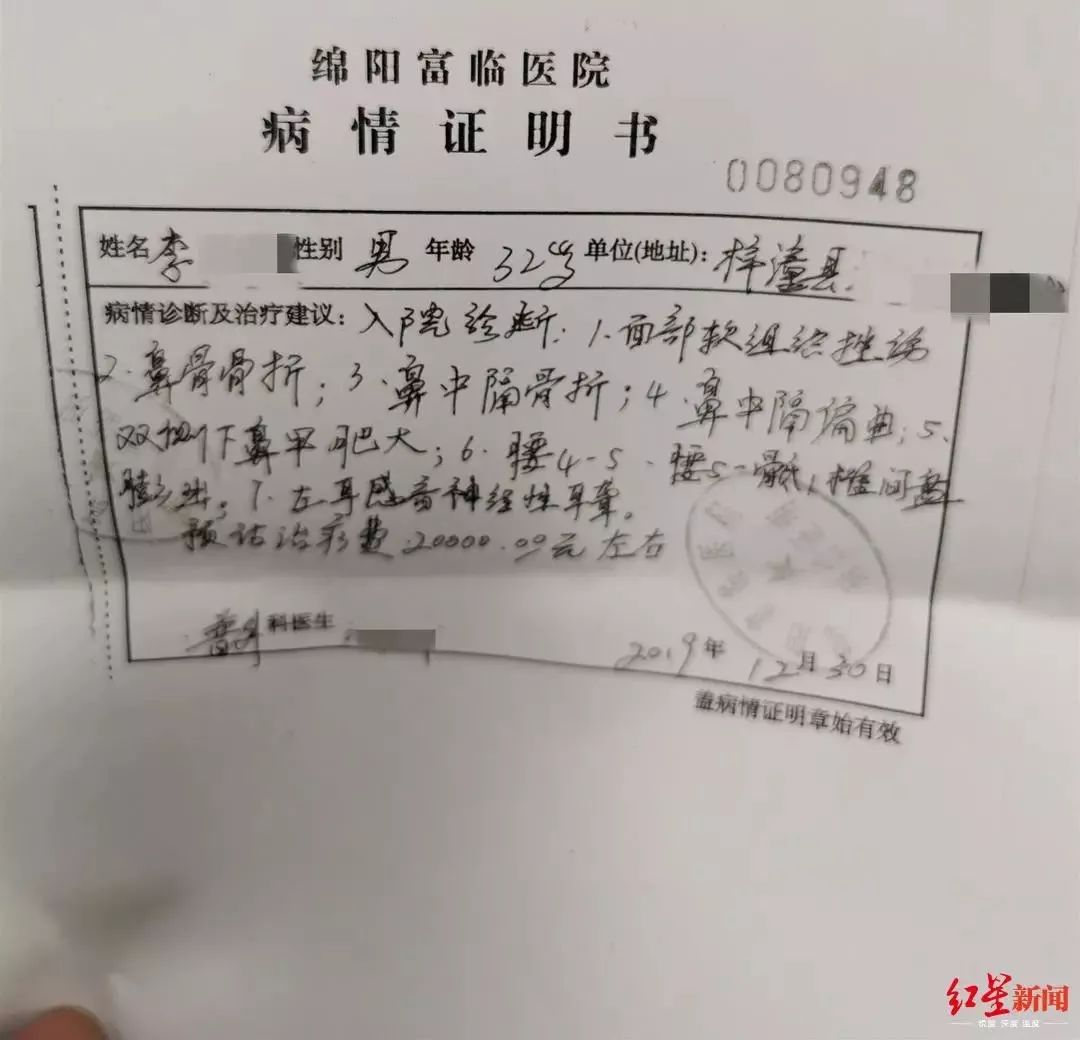 绵阳富临医院
病情证明书
0080948
姓名 李 性别 男 年龄 32岁 单位(地址): 梓潼县
病情诊断及治疗建议: 入院诊断: 1.面部软组织挫伤
2.鼻骨骨折; 3.鼻中隔骨折; 4.鼻中隔偏曲; 5.
双侧下鼻甲肥大; 6.腰4-5、腰5-骶1椎间盘
膨出; 7.左耳感音神经性耳聋。
预估治疗费20000.00元左右
普外科医生
2019年12月30日
盖病情证明章始有效
红星新闻